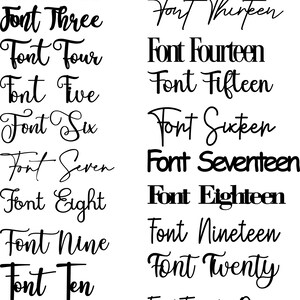 Font Three
Font Four
Font Five
Font Six
Font Seven
Font Eight
Font Nine
Font Ten
Font Thirteen
Font Fourteen
Font Fifteen
Font Sixteen
Font Seventeen
Font Eighteen
Font Nineteen
Font Twenty